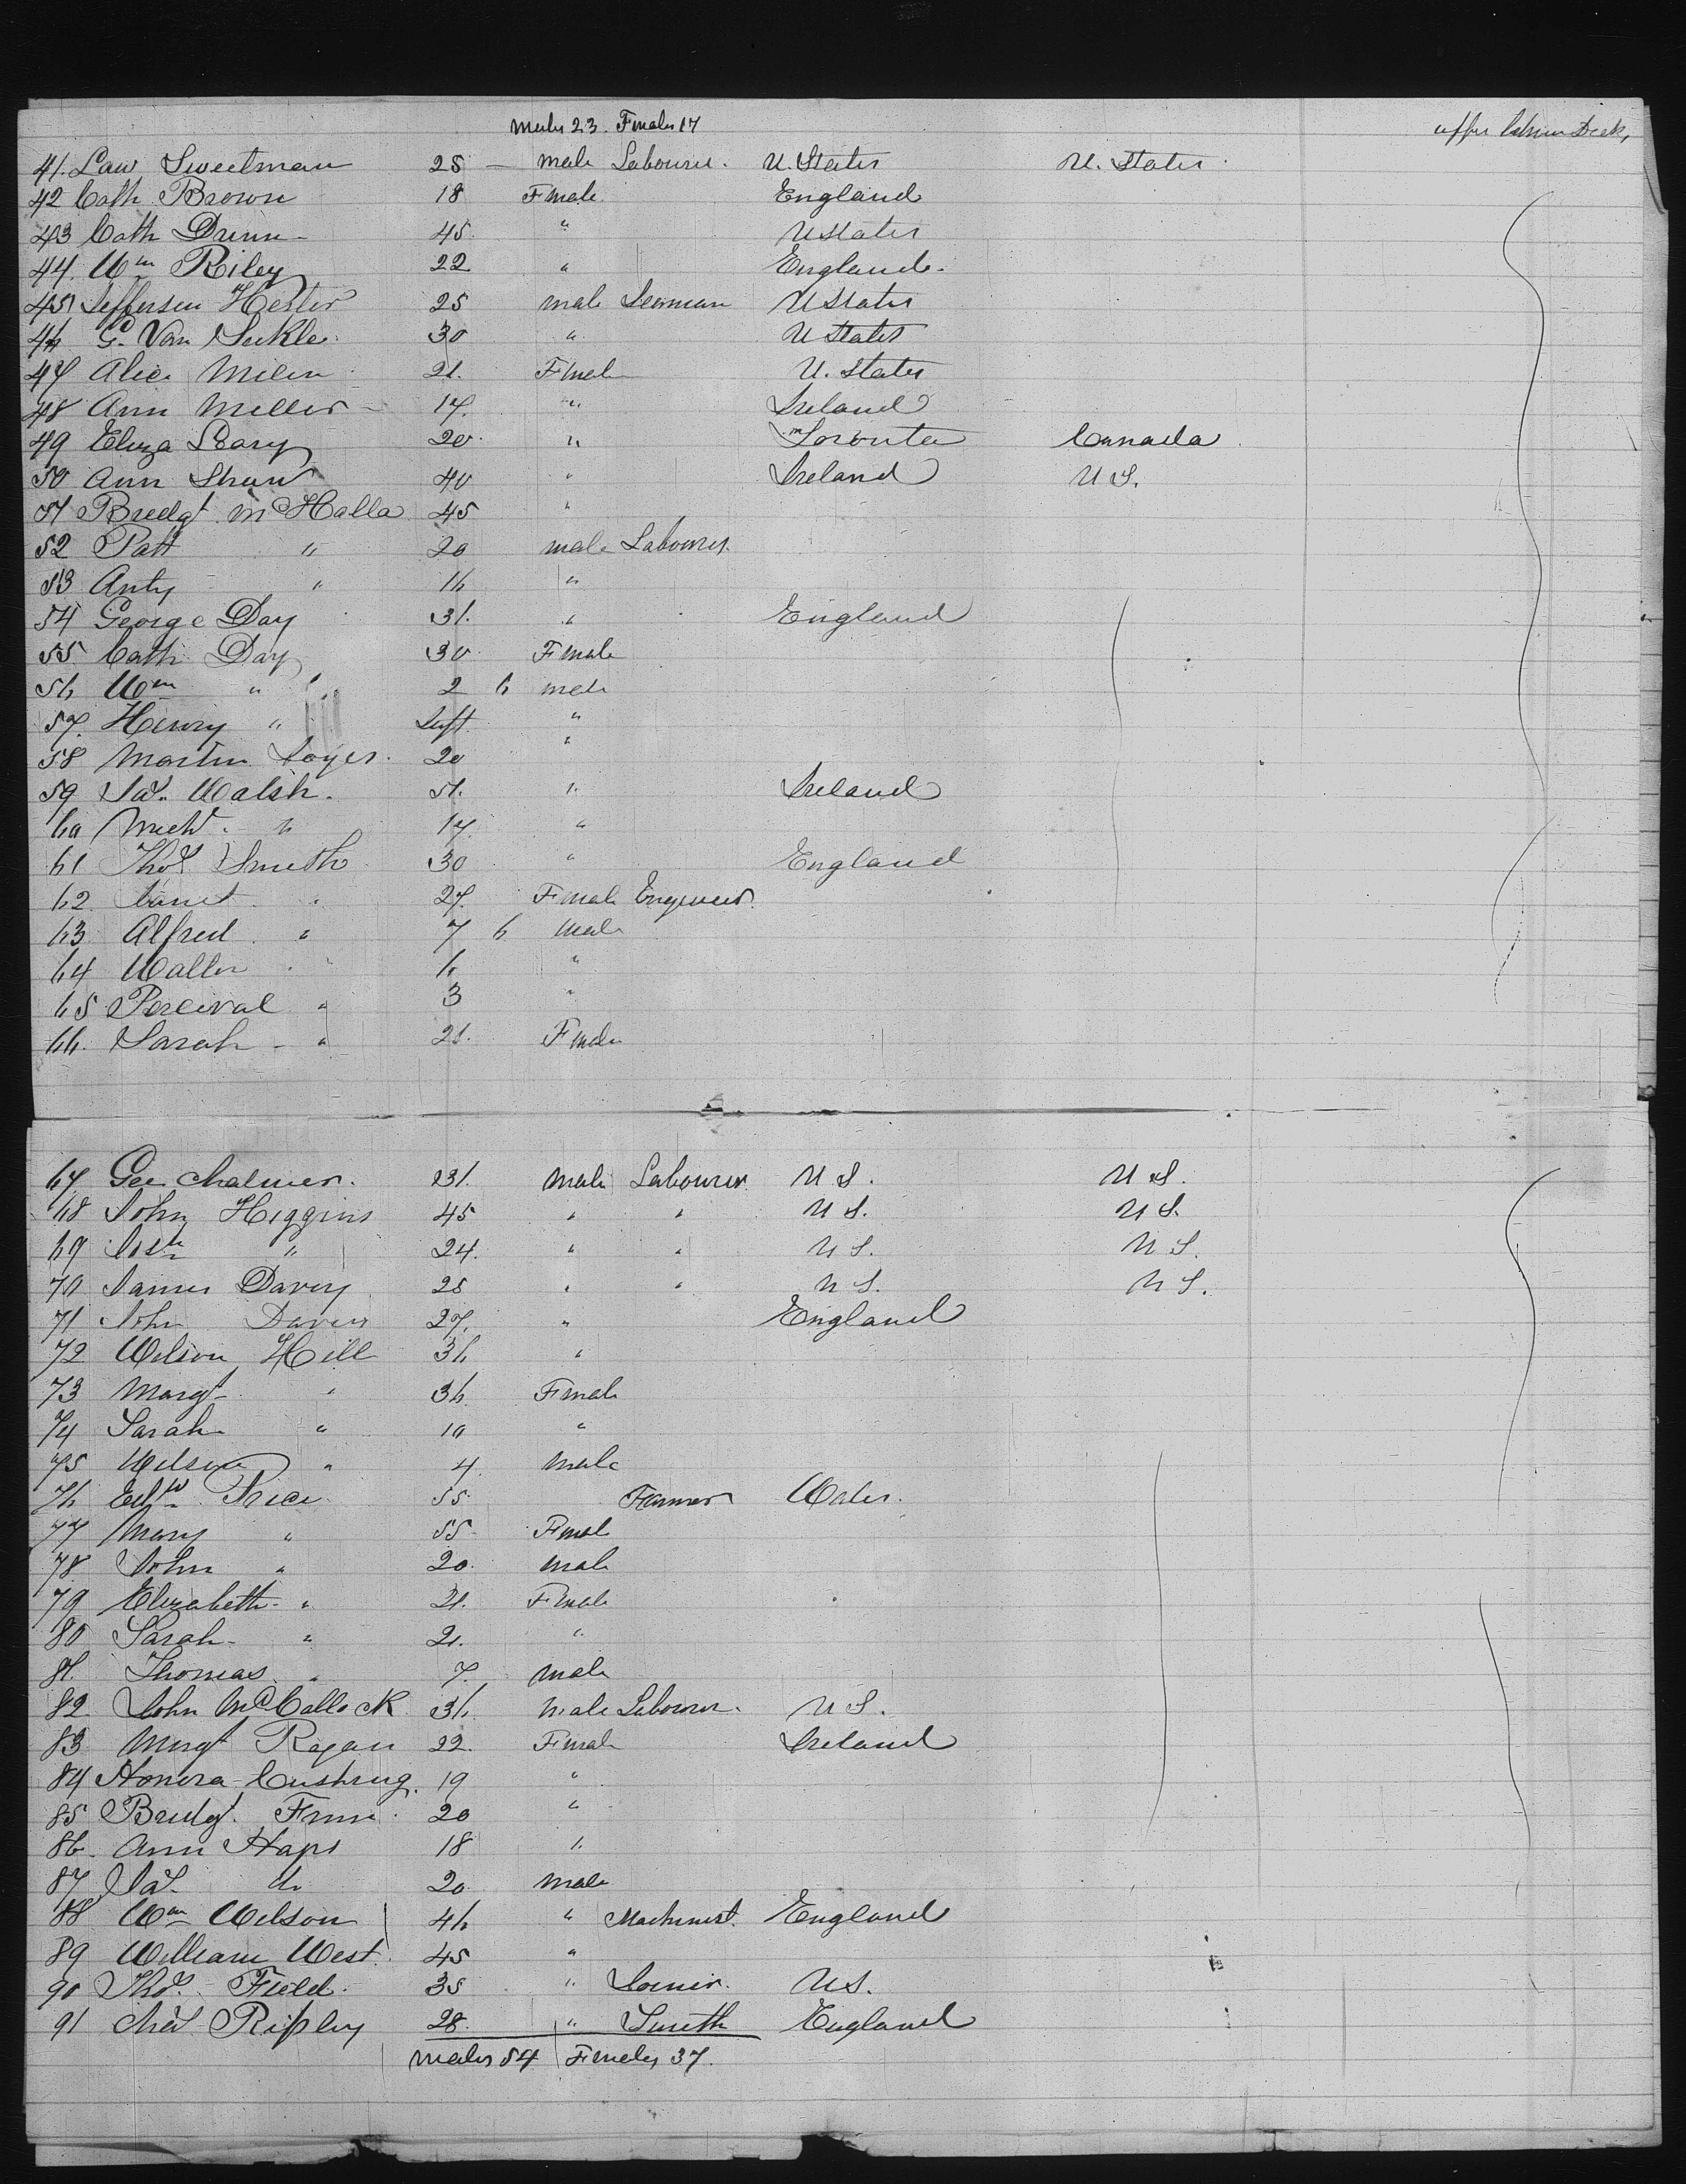 Males 23. Females 17
upper Deck,
41. Law Sweetman 25 — male Labourer. U. States U. States.
42 Cath Brown 18 Female England
43 Cath Dunn 45. " U States
44. Wm Riley 22 " England.
45 Jefferson Hester 25 male Seaman U States
46 G. Van Sickle. 30 " U States
47 Alice Milen 21. Female U. States
48 Ann Miller - 17. " Ireland
49 Eliza Leary 20. " Toronto Canada.
50 Ann Shaw 40 " Ireland U S.
51 Bridgt McHalla 45 "
52 Patt " 20 male Labourer.
53 Anty " 16 "
54 George Day 31. " England
55 Cath Day 30 Female
56 Wm " 2 6 male
57. Henry " Inft. "
58 Martin 20 "
59 Jas. Walsh. 51. " Ireland
60 Michl. " 17. "
61 Thos Smith 30 " England
62. Janet " 27. Female Engineer.
63. Alfred " 7 6 Male
64 Walter " 6 "
65 Percival " 3 "
66. Sarah - " 21. Female
67 Geo Chalmer. 31. male Labourer U S. U S.
68 John Higgins 45 " " U S. U S.
69 Josh " 24. " " U S. U S.
70 James Davey 25 " " U S. U S.
71 John Davis 27. " England
72 Wilson Hill 36 "
73 Margt " 36. Female
74 Sarah " 10 "
75 Wilson " 4. male
76 Edwd Price 55. Farmer Wales.
77 Mary " 55 Femal
78 John " 20. male
79 Elizabeth - " 21. Female
80 Sarah - " 21. "
81. Thomas " 7. male
82. John McCallock 36. male Labourer. U S.
83 Margt Ragan 22. Female Ireland
84 Honora 19 "
85 Bridgt. Finn. 20 "
86. Ann Haps 18 "
87 Jas. do 20 male
88 Wm Wilson 46 " Machinist. England
89 William West. 45 "
90 Thos. Field. 35 " Joiner. U S.
91 Chas Ripley 28. " Smith England
Males 54 Females 37.